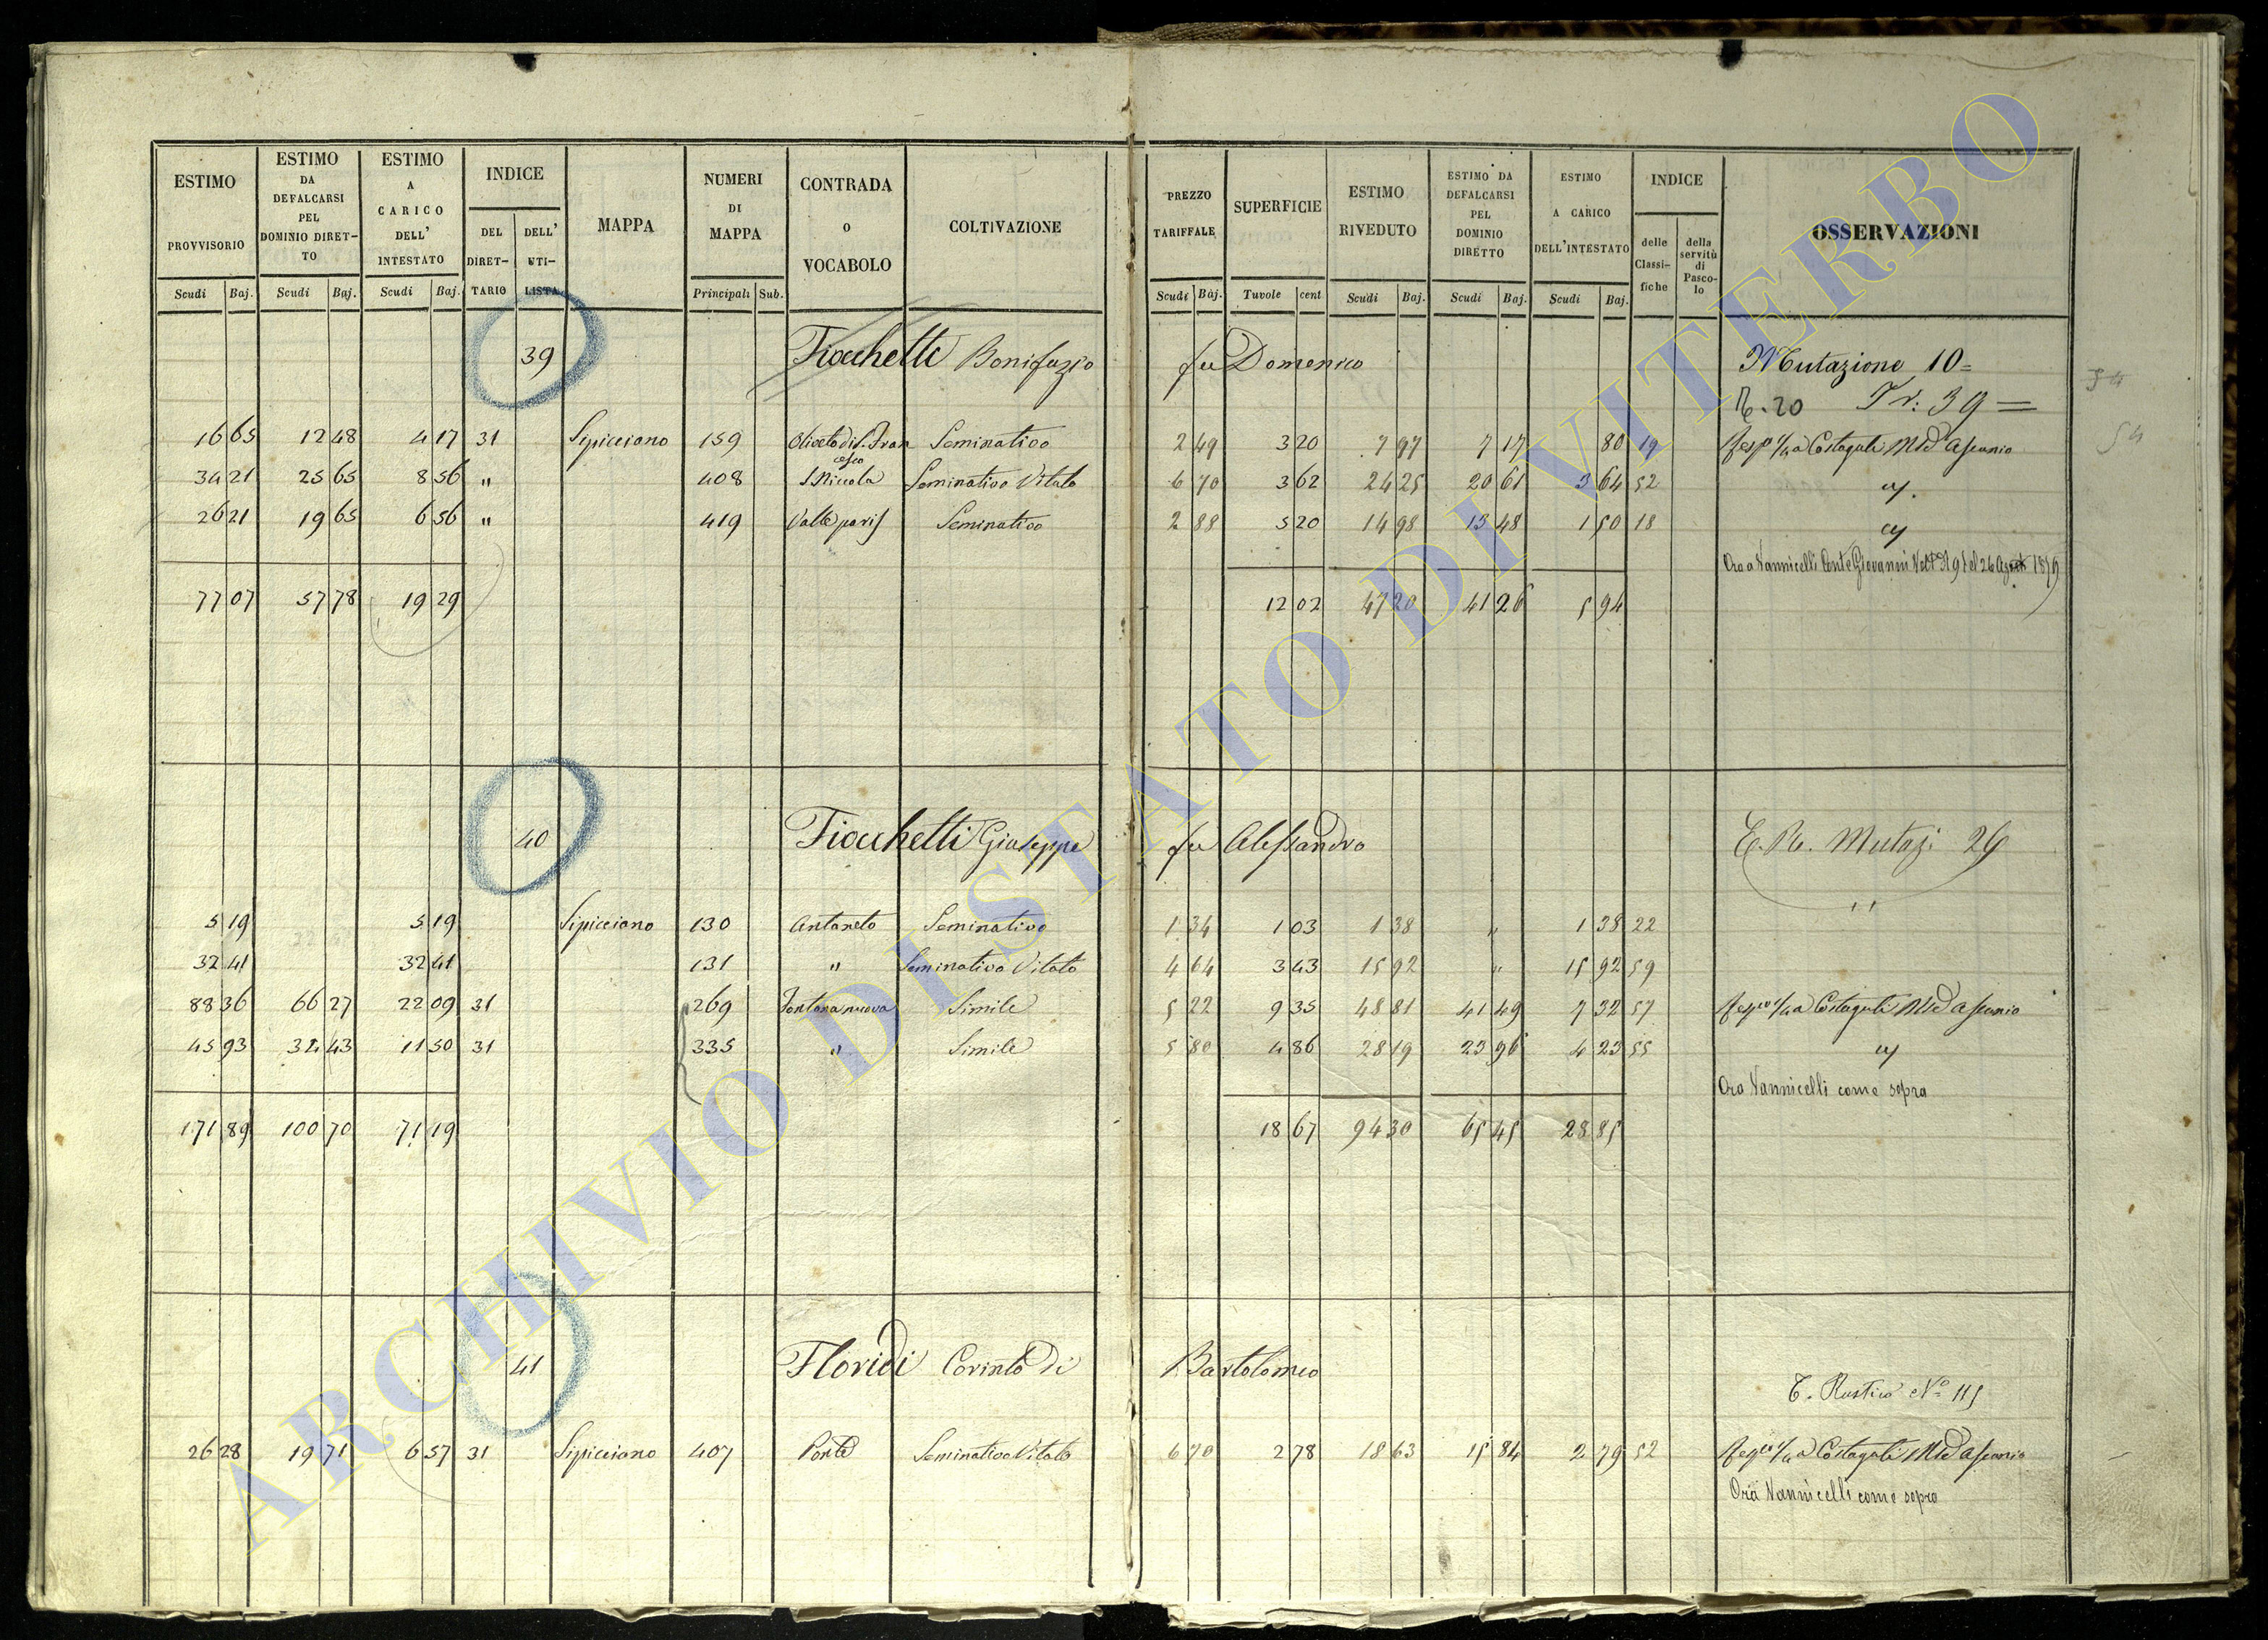 ESTIMO PROVVISORIO Scudi Baj.
ESTIMO DA DEFALCARSI PEL DOMINIO DIRET-TO Scudi Baj.
ESTIMO A CARICO DELL' INTESTATO Scudi Baj.
INDICE DEL DIRET-TARIO DELL' UTI-LISTA
MAPPA
NUMERI DI MAPPA Principali Sub.
CONTRADA O VOCABOLO
COLTIVAZIONE
PREZZO TARIFFALE Scudi Baj.
SUPERFICIE Tavole cent
ESTIMO RIVEDUTO Scudi Baj.
ESTIMO DA DEFALCARSI PEL DOMINIO DIRETTO Scudi Baj.
ESTIMO A CARICO DELL'INTESTATO Scudi Baj.
INDICE delle Classi-fiche della servitù di Pasco-lo
OSSERVAZIONI
39 Fiocchetti Bonifazio fu Domenico Mutazione 10=
R. 20 Tr: 39 =
16 65 12 48 4 17 31 Sipicciano 159 Oliveto di S. Fran cesco Seminativo 2 49 3 20 7 97 7 17 80 19 Resp. 1/4 a Costaguti Mse Ascanio
34 21 25 65 8 56 " 408 S. Niccola Seminativo Vitato 6 70 3 62 24 25 20 61 3 64 52
26 21 19 65 6 56 " 419 Valle Seminativo 2 88 5 20 14 98 13 48 1 50 18
Ora a Vannicelli Conte Giovanni del 26 Agosto 1879
77 07 57 78 19 29 12 02 47 20 41 26 5 94
54
40 Fiocchetti Giuseppe fu Alessandro C. R. Mutazi 26
5 19 5 19 Sipicciano 130 Antaneto Seminativo 1 34 1 03 1 38 " 1 38 22
32 41 32 41 131 " Seminativo Vitato 4 64 3 43 15 92 " 15 92 59
88 36 66 27 22 09 31 269 Fontana nuova Simile 5 22 9 35 48 81 41 49 7 32 57 Resp. 1/4 a Costaguti Mse Ascanio
45 93 34 43 11 50 31 335 " Simile 5 80 4 86 28 19 23 96 4 23 55
Ora Vannicelli come sopra
171 89 100 70 71 19 18 67 94 30 65 45 28 85
41 Floridi Corinto di Bartolomeo
C. Rustico No 115
26 28 19 71 6 57 31 Sipicciano 407 Ponte Seminativo Vitato 6 70 2 78 18 63 15 84 2 79 52 Resp. 1/4 a Costaguti Mse Ascanio
Ora Vannicelli come sopra
ARCHIVIO DI STATO DI VITERBO